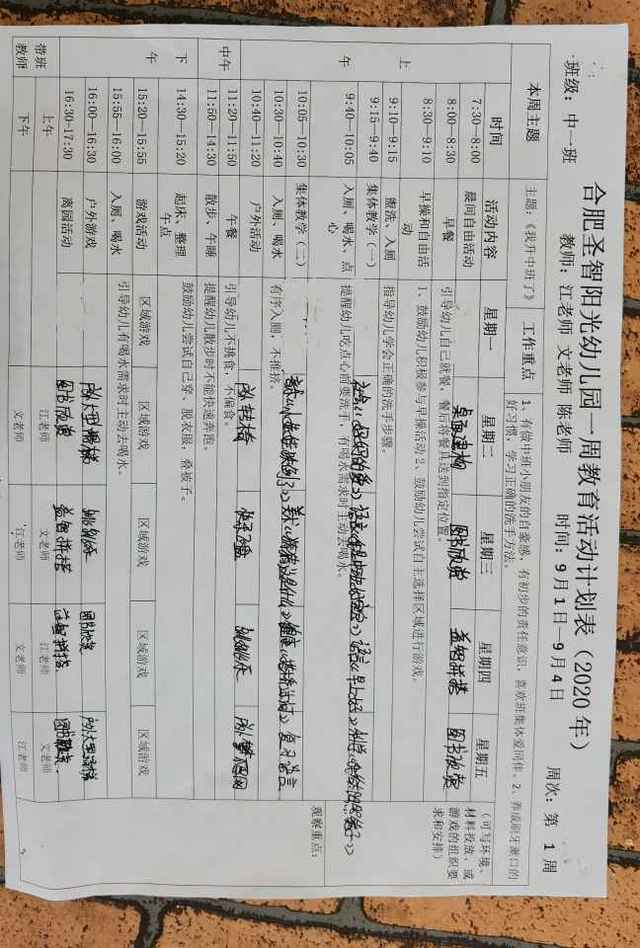 合肥圣智阳光幼儿园一周教育活动计划表（2020年）
班级：中一班 教师：江老师 文老师 陈老师 时间：9月1日—9月4日 周次：第 1 周
本周主题 主题：《我升中班了》 工作重点 1、有做中班小朋友的自豪感，有初步的责任意识，喜欢班集体爱同伴。2、养成刷牙漱口的
好习惯，学习正确的洗手方法。
时间 活动内容 星期一 星期二 星期三 星期四 星期五 （可写环境、
材料投放，或
游戏的组织要
求和安排）
上午
7:30—8:00 晨间自由活动 桌面建构 图书阅览 益智拼搭 图书阅览
8:00—8:30 早餐 引导幼儿自己就餐，餐后将餐具送到指定位置。
8:30—9:10 早操和自由活动 1、鼓励幼儿积极参与早操活动 2、鼓励幼儿尝试自主选择区域进行游戏。
9:10—9:15 盥洗、入厕 指导幼儿学会正确的洗手步骤。
9:15—9:40 集体教学（一）
9:40—10:05 入厕、喝水、点心 提醒幼儿吃点心前要洗手，有喝水需求时主动去喝水。
10:05—10:30 集体教学（二） 复习语言 观察重点：
10:30—10:40 入厕、喝水 有序入厕，不推挤。
10:40—11:20 户外活动
中午
11:20—11:50 午餐 引导幼儿不挑食，不偏食。
11:50—14:30 散步、午睡 提醒幼儿散步时不能快速奔跑。
下午
14:30—15:20 起床、整理
午点 鼓励幼儿尝试自己穿，脱衣服，叠被子。
15:20—15:55 游戏活动 区域游戏 区域游戏 区域游戏 区域游戏 区域游戏
15:55—16:00 入厕、喝水 引导幼儿有喝水需求时主动去喝水。
16:00—16:30 户外游戏
16:30—17:30 离园活动 图书阅览 益智拼搭 益智拼搭
带班教师 上午 江老师 文老师 江老师 文老师
下午 文老师 江老师 文老师 江老师